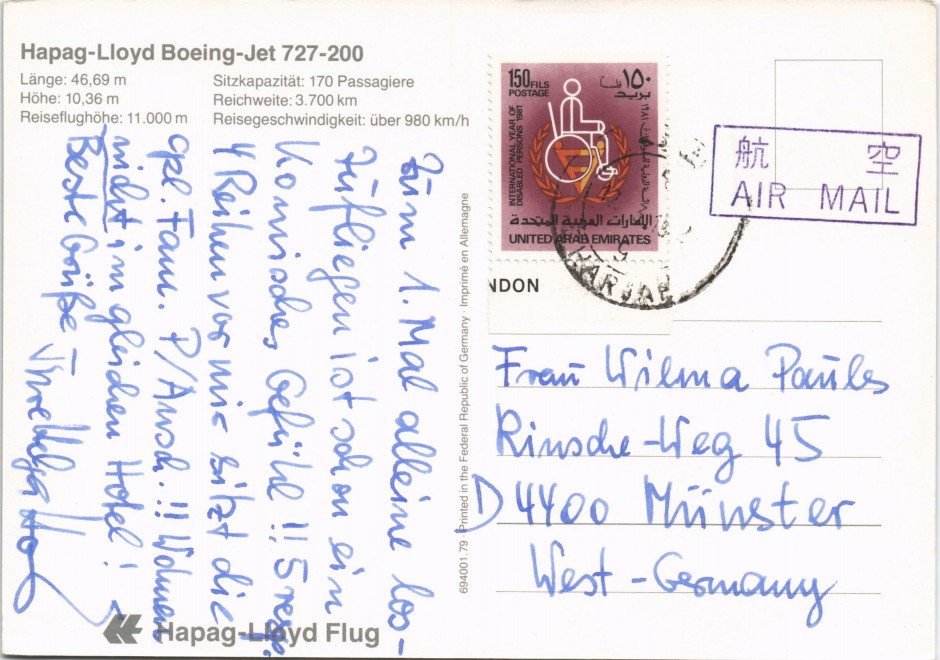 Hapag-Lloyd Boeing-Jet 727-200
Länge: 46,69 m
Höhe: 10,36 m
Reiseflughöhe: 11.000 m
Sitzkapazität: 170 Passagiere
Reichweite: 3.700 km
Reisegeschwindigkeit: über 980 km/h
Zum 1. Mal alleine los-
zufliegen ist schon ein
komisches Gefühl!! 5
4 Reihen vor mir sitzt die
gel. Fam. P/Ansch.!! Wohnen
nicht im gleichen Hotel!
Beste Grüße - Ihre Helga
Hapag-Lloyd Flug
694001.79 Printed in the Federal Republic of Germany · Imprimé en Allemagne
150 FILS
POSTAGE
١٥٠ فلسا
بريد
INTERNATIONAL YEAR OF
DISABLED PERSONS 1981
الامارات العربية المتحدة
UNITED ARAB EMIRATES
NDON
SHARJAH
航 空
AIR MAIL
Frau Wilma Paules
Rinsche-Weg 45
D 4400 Münster
West-Germany